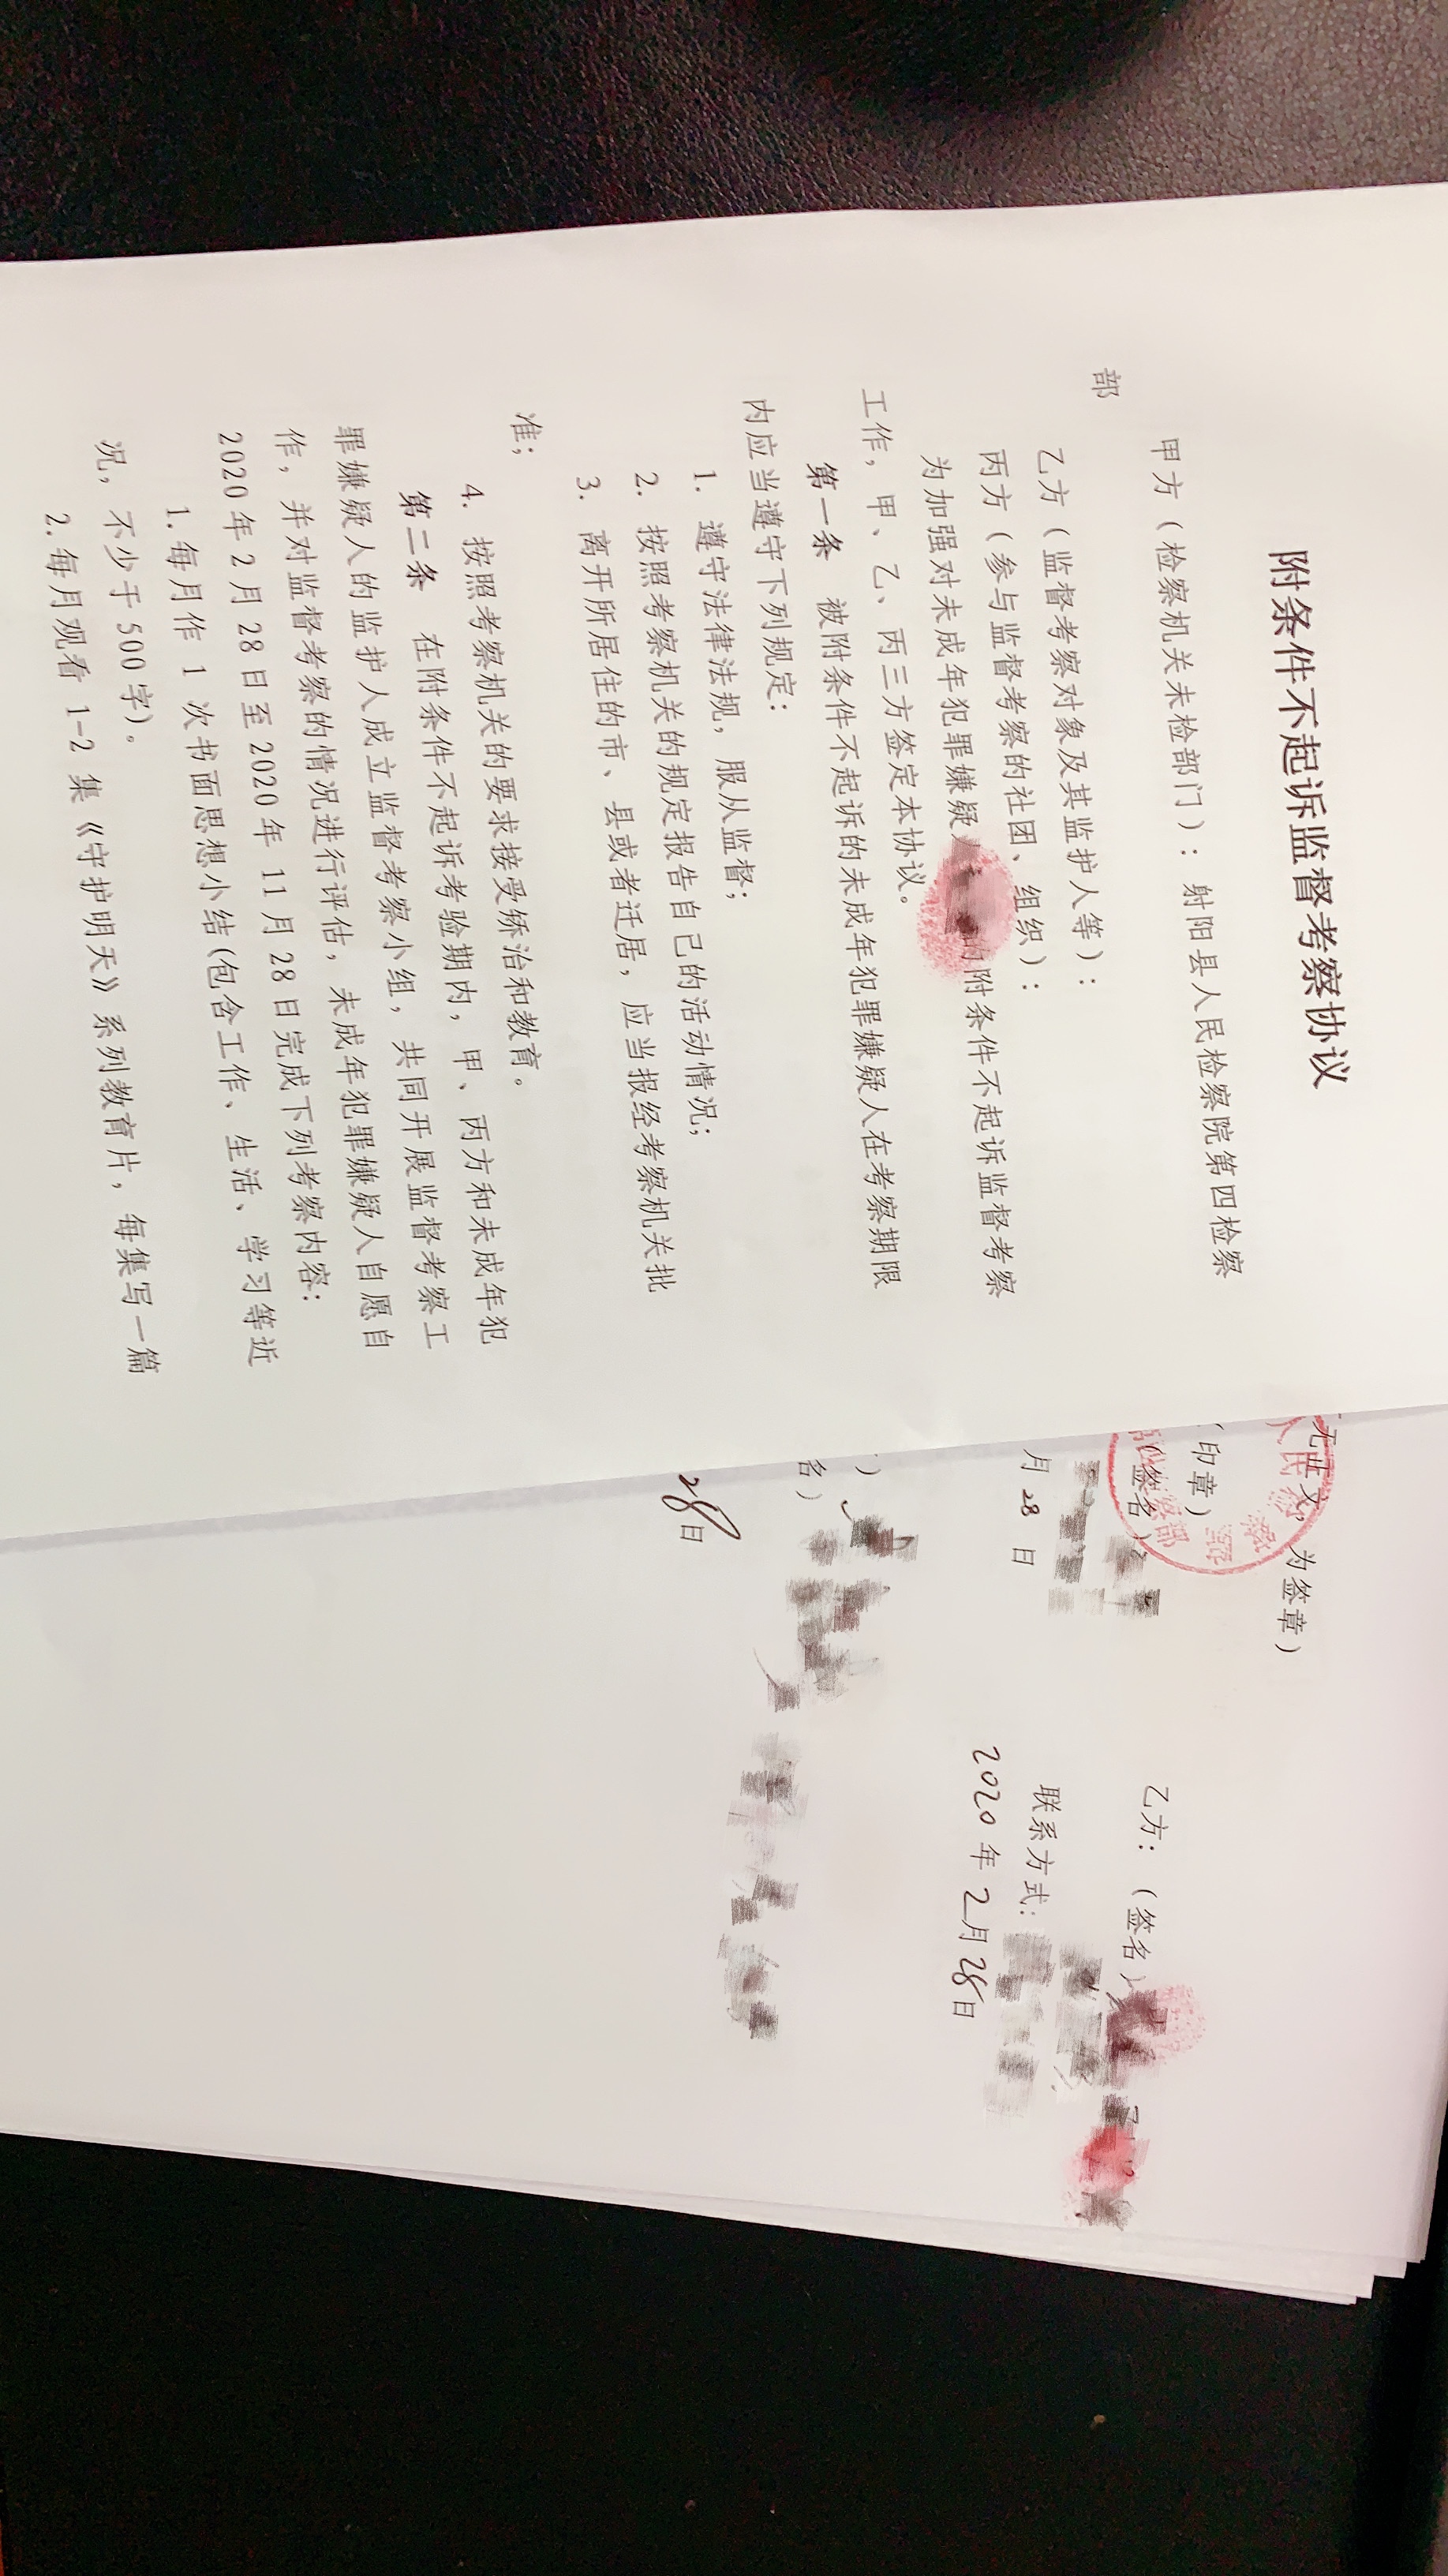 附条件不起诉监督考察协议
甲方（检察机关未检部门）：射阳县人民检察院第四检察
部
乙方（监督考察对象及其监护人等）：
丙方（参与监督考察的社团、组织）：
为加强对未成年犯罪嫌疑 的附条件不起诉监督考察
工作，甲、乙、丙三方签定本协议。
第一条 被附条件不起诉的未成年犯罪嫌疑人在考察期限
内应当遵守下列规定：
1. 遵守法律法规，服从监督；
2. 按照考察机关的规定报告自己的活动情况；
3. 离开所居住的市、县或者迁居，应当报经考察机关批
准；
4. 按照考察机关的要求接受矫治和教育。
第二条 在附条件不起诉考验期内，甲、丙方和未成年犯
罪嫌疑人的监护人成立监督考察小组，共同开展监督考察工
作，并对监督考察的情况进行评估，未成年犯罪嫌疑人自愿自
2020年2月28日至2020年11月28日完成下列考察内容：
1.每月作1次书面思想小结(包含工作、生活、学习等近
况，不少于500字)。
2.每月观看1-2集《守护明天》系列教育片，每集写一篇
无正文，为签章）
（印章）
（签名）
月28日
乙方：（签名）
联系方式：
2020年2月28日
名）
28日